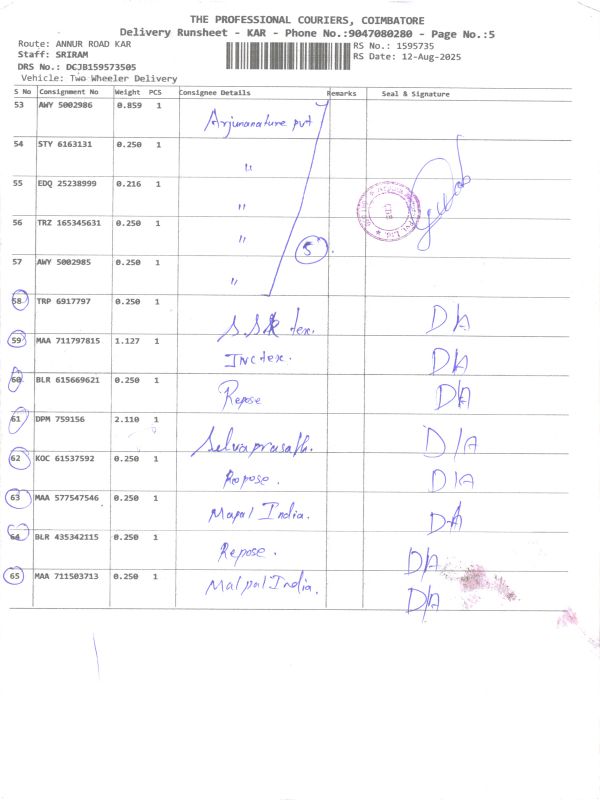 THE PROFESSIONAL COURIERS, COIMBATORE
Delivery Runsheet - KAR - Phone No.:9047080280 - Page No.:5
Route: ANNUR ROAD KAR RS No.: 1595735
Staff: SRIRAM RS Date: 12-Aug-2025
DRS No.: DCJB159573505
Vehicle: Two Wheeler Delivery
S No Consignment No Weight PCS Consignee Details Remarks Seal & Signature
53 AWY 5002986 0.859 1 Arjunanature pvt
54 STY 6163131 0.250 1 "
55 EDQ 25238999 0.216 1 "
56 TRZ 165345631 0.250 1 " 5
57 AWY 5002985 0.250 1 "
58 TRP 6917797 0.250 1 S.S.K tex. D/A
59 MAA 711797815 1.127 1 Inctex. D/A
60 BLR 615669621 0.250 1 Repose D/A
61 DPM 759156 2.110 1 Selvaprasath. D/A
62 KOC 61537592 0.250 1 Repose. D/A
63 MAA 577547546 0.250 1 Mapal India. D/A
64 BLR 435342115 0.250 1 Repose. D/A
65 MAA 711503713 0.250 1 Malpal India. D/A